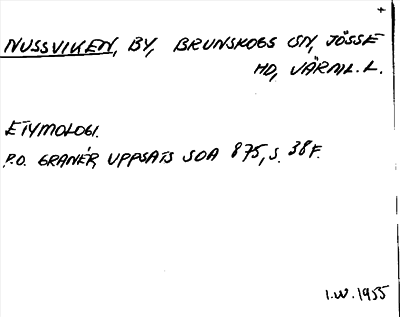 +
NUSSVIKEN, BY, BRUNSKOGS SN, JÖSSE
HD, VÄRML. L.
ETYMOLOGI.
P.O. GRANÉR, UPPSATS SOA 875, S. 38 F.
I.W. 1955